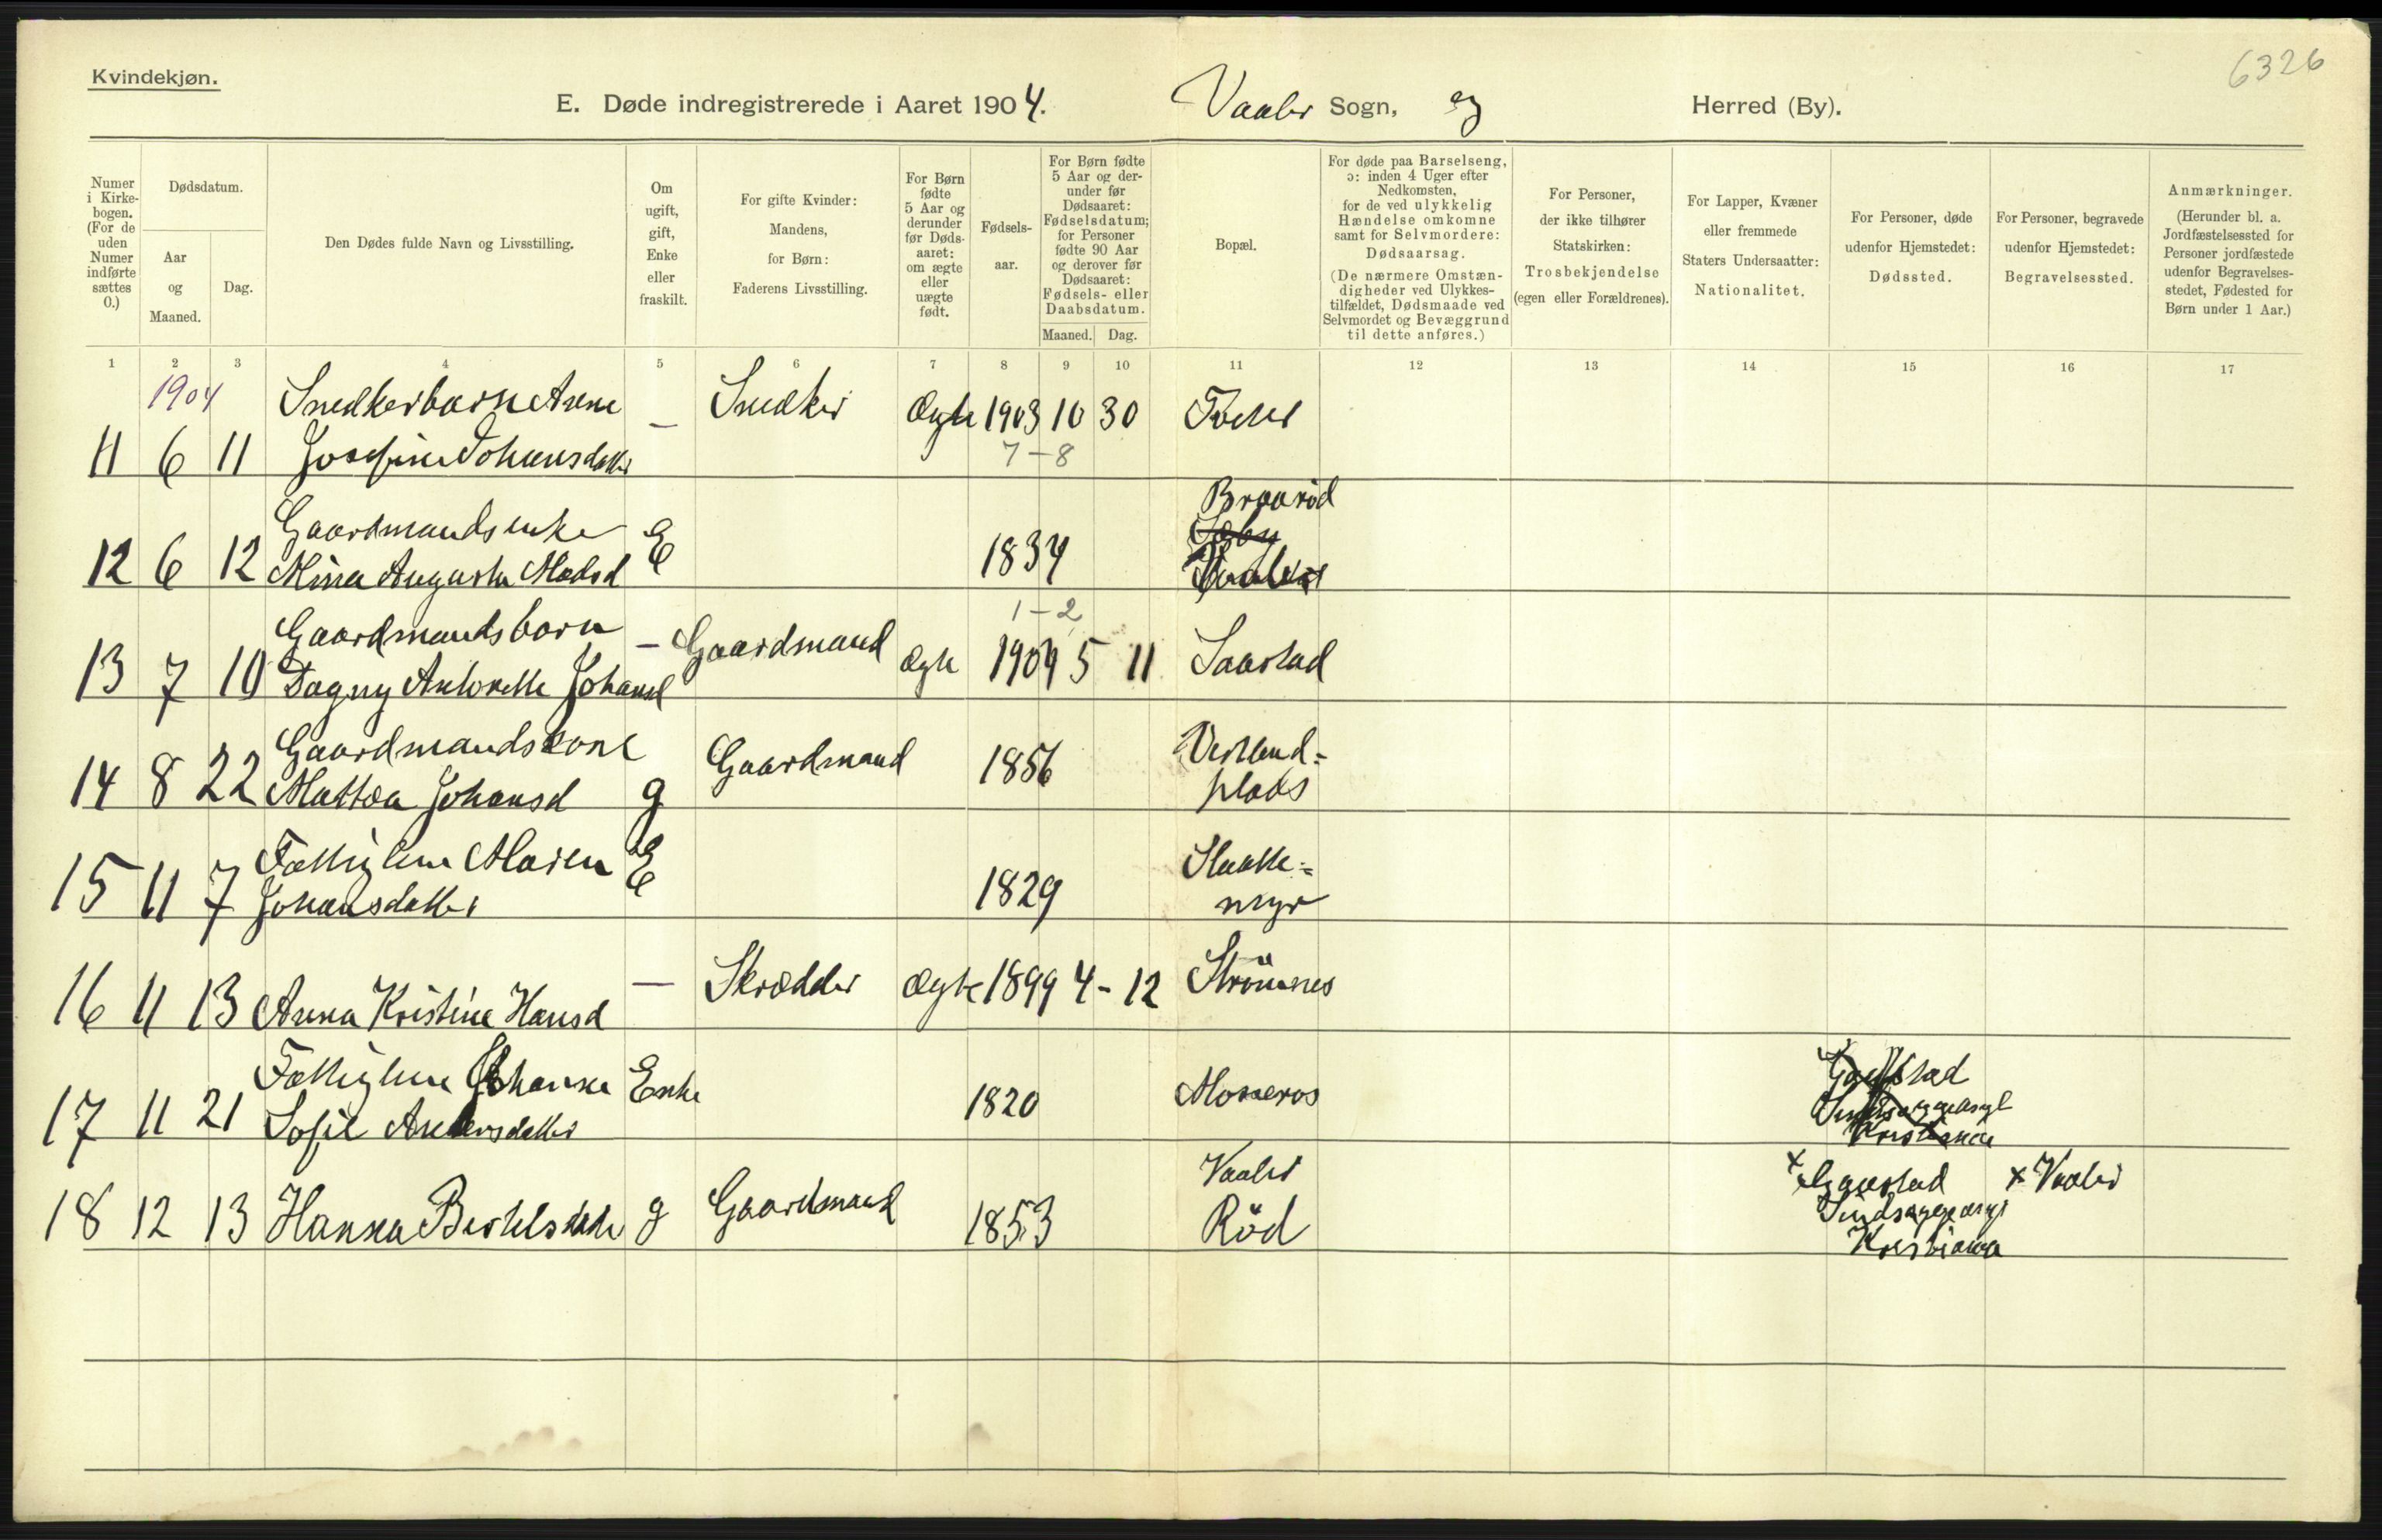 6326
Kvindekjøn.
E. Døde indregistrerede i Aaret 1904. Vaaler Sogn, og Herred (By).
Numer i Kirkebogen. (For de uden Numer indførte sættes 0.)
Dødsdatum.
Aar og Maaned.
Dag.
Den Dødes fulde Navn og Livsstilling.
Om ugift, gift, Enke eller fraskilt.
For gifte Kvinder: Mandens, for Børn: Faderens Livsstilling.
For Børn fødte 5 Aar og derunder før Dødsaaret: om ægte eller uægte født.
Fødselsaar.
For Børn fødte 5 Aar og derunder før Dødsaaret: Fødselsdatum; for Personer fødte 90 Aar og derover før Dødsaaret: Fødsels- eller Daabsdatum.
Maaned. Dag.
Bopæl.
For døde paa Barselseng, ɔ: inden 4 Uger efter Nedkomsten, for de ved ulykkelig Hændelse omkomne samt for Selvmordere: Dødsaarsag. (De nærmere Omstændigheder ved Ulykkestilfældet, Dødsmaade ved Selvmordet og Bevæggrund til dette anføres.)
For Personer, der ikke tilhører Statskirken: Trosbekjendelse (egen eller Forældrenes).
For Lapper, Kvæner eller fremmede Staters Undersaatter: Nationalitet.
For Personer, døde udenfor Hjemstedet: Dødssted.
For Personer, begravede udenfor Hjemstedet: Begravelsessted.
Anmærkninger. (Herunder bl. a. Jordfæstelsessted for Personer jordfæstede udenfor Begravelsesstedet, Fødested for Børn under 1 Aar.)
1 2 3 4 5 6 7 8 9 10 11 12 13 14 15 16 17
1904 Snedkerbarn Anne — Snedker Ægte 1903 10 30
11 6 11 Josefine Johansdatter 7-8
Braarød
Gaardmandsenke E
12 6 12 Mina Augusta Madsd 1834
1-2
Gaardmandsbarn — Gaardmand
13 7 10 Dagny Antonette Johansd Ægte 1904 5 11 Saastad
Gaardmandskone Gaardmand 1856 Vestland=
14 8 22 Mattea Johansd g plads
Fattiglem Maren E Slaatte=
15 11 7 Johansdatter 1829 myr
16 11 13 Anna Kristine Hansd — Skrædder Ægte 1899 4-12 Strömnes
Fattiglem Johanne Enke Gaustad
17 11 21 Sofie Andersdatter 1820 Mosseros Sindsygeasyl
Kristiania
Vaaler × Gaustad × Vaaler
18 12 13 Hanna Bertelsdatter g Gaardmand 1853 Röd Sindsygeasyl
Kristiania